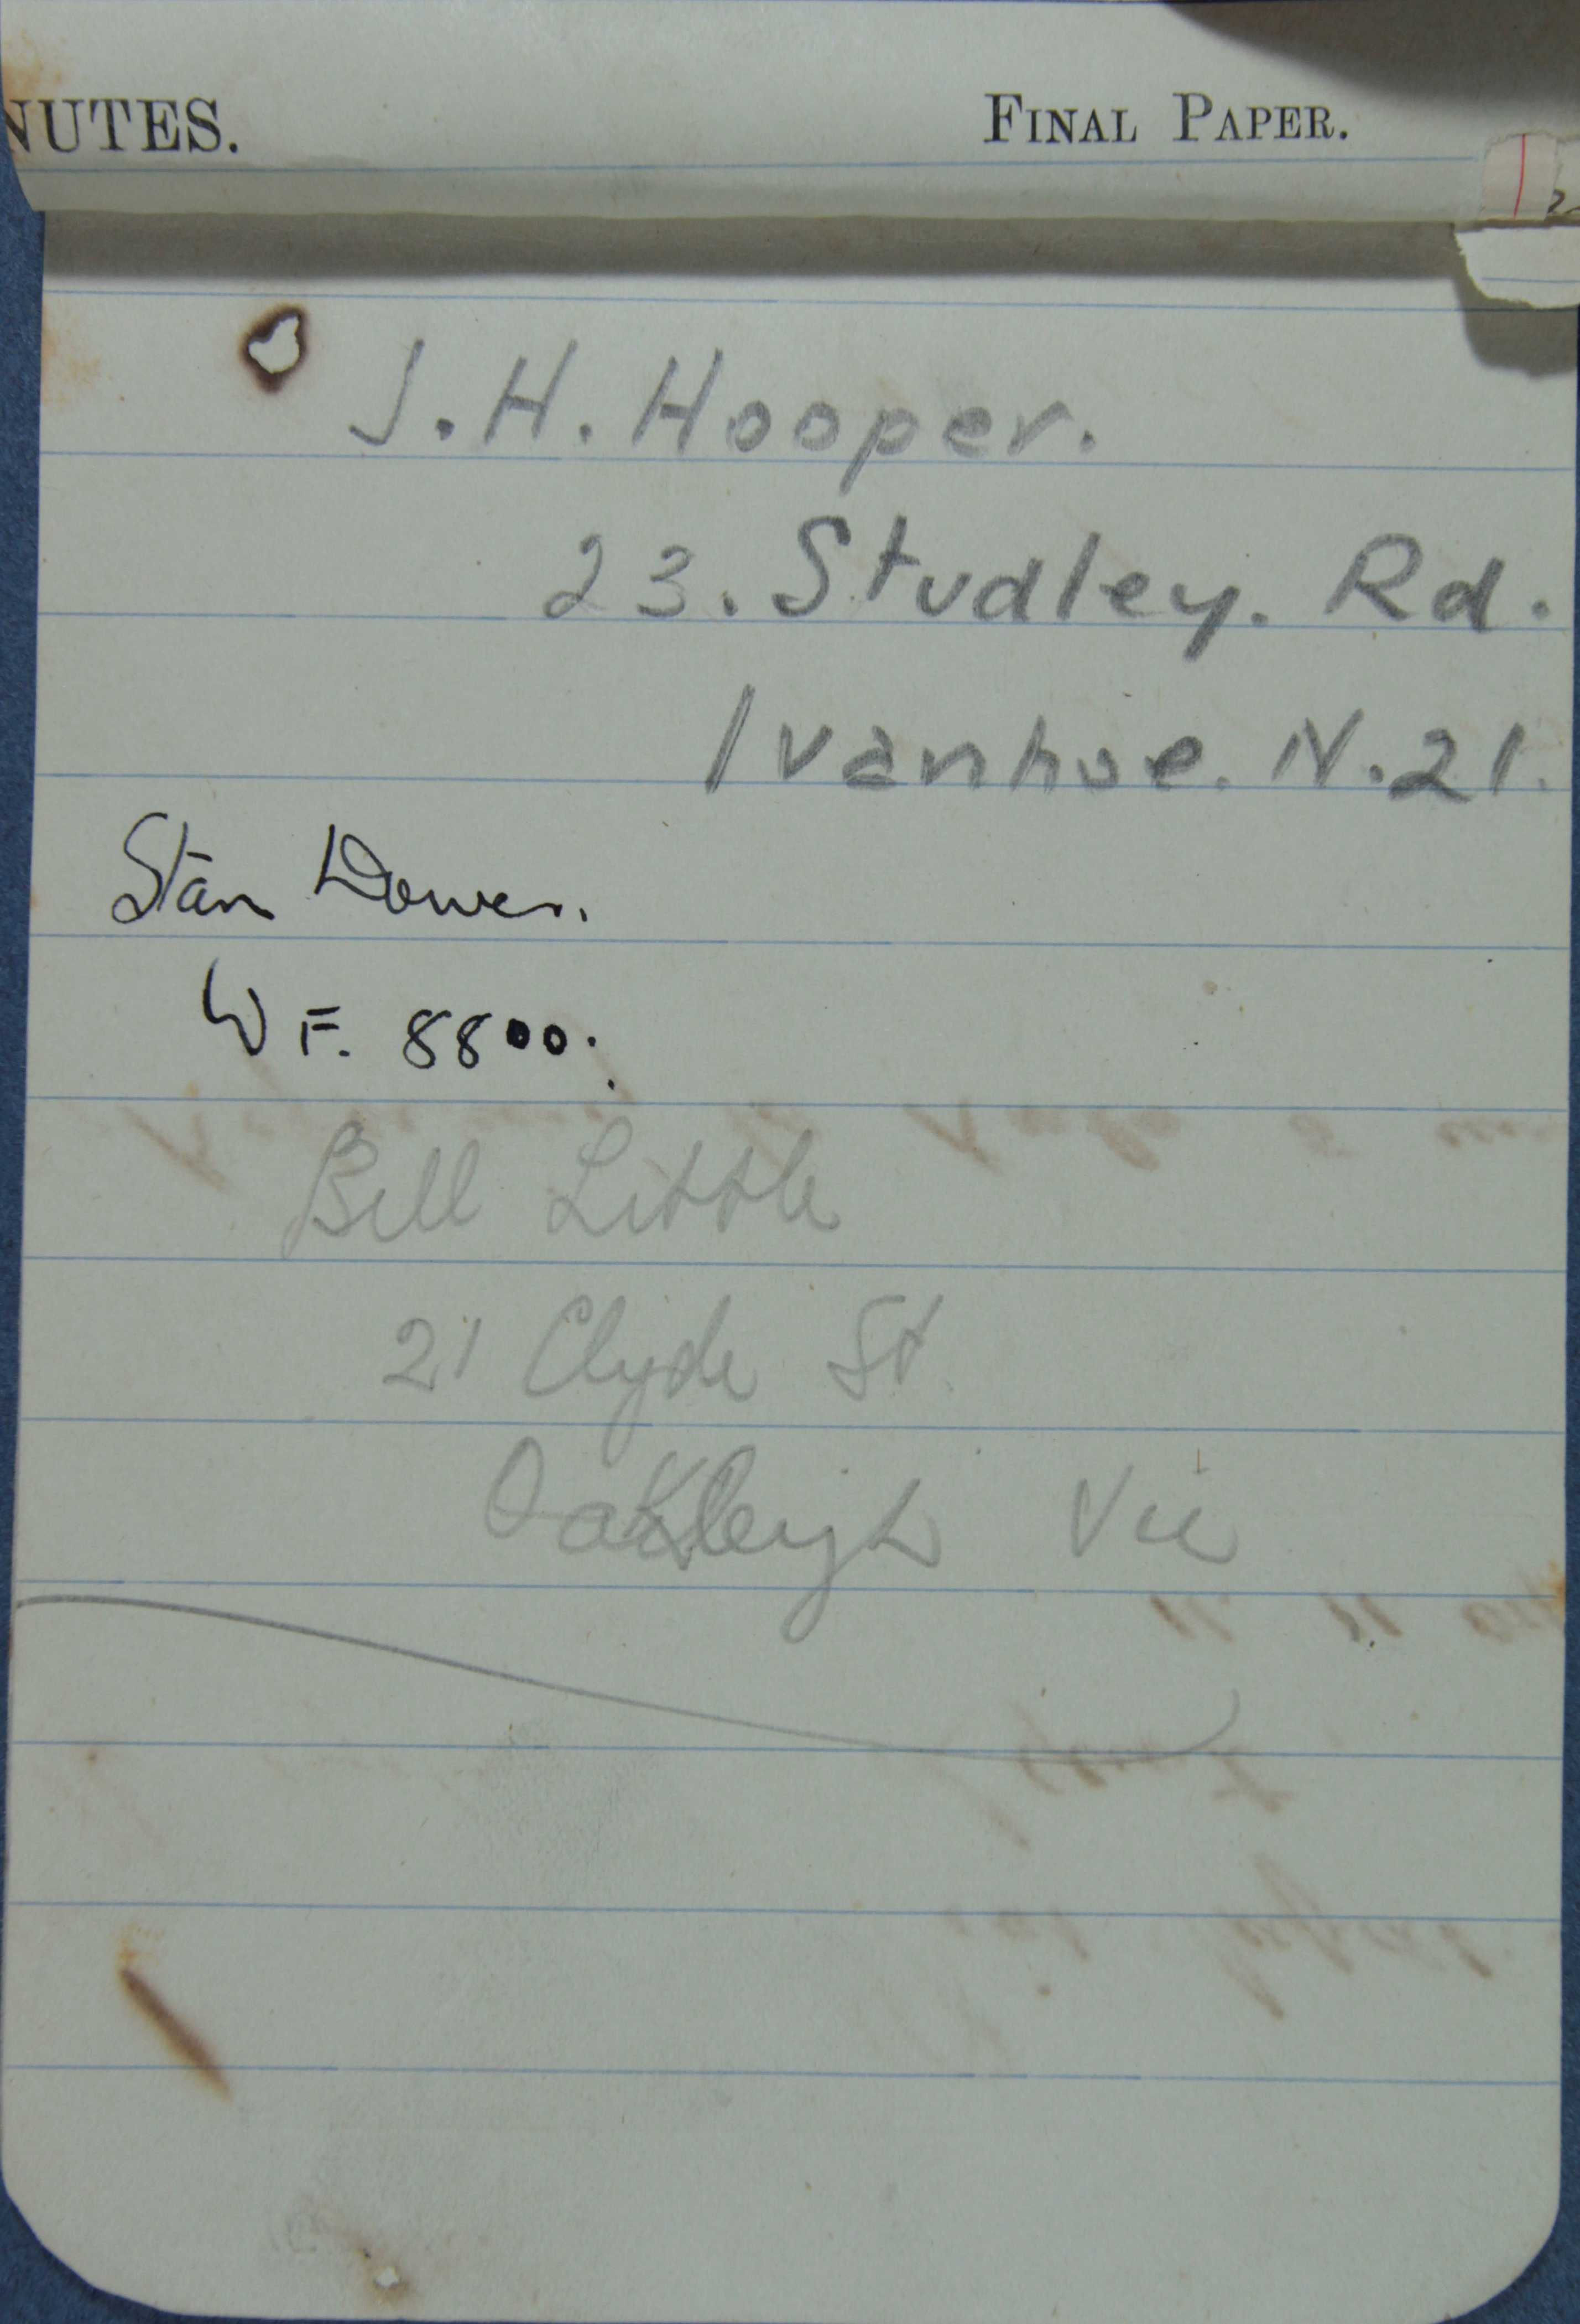 NUTES.
FINAL PAPER.
J. H. Hooper.
23. Studley. Rd.
Ivanhoe. N. 21.
Stan Dower.
W F. 8800.
Bill Little
21 Clyde St.
Oakleigh Vic